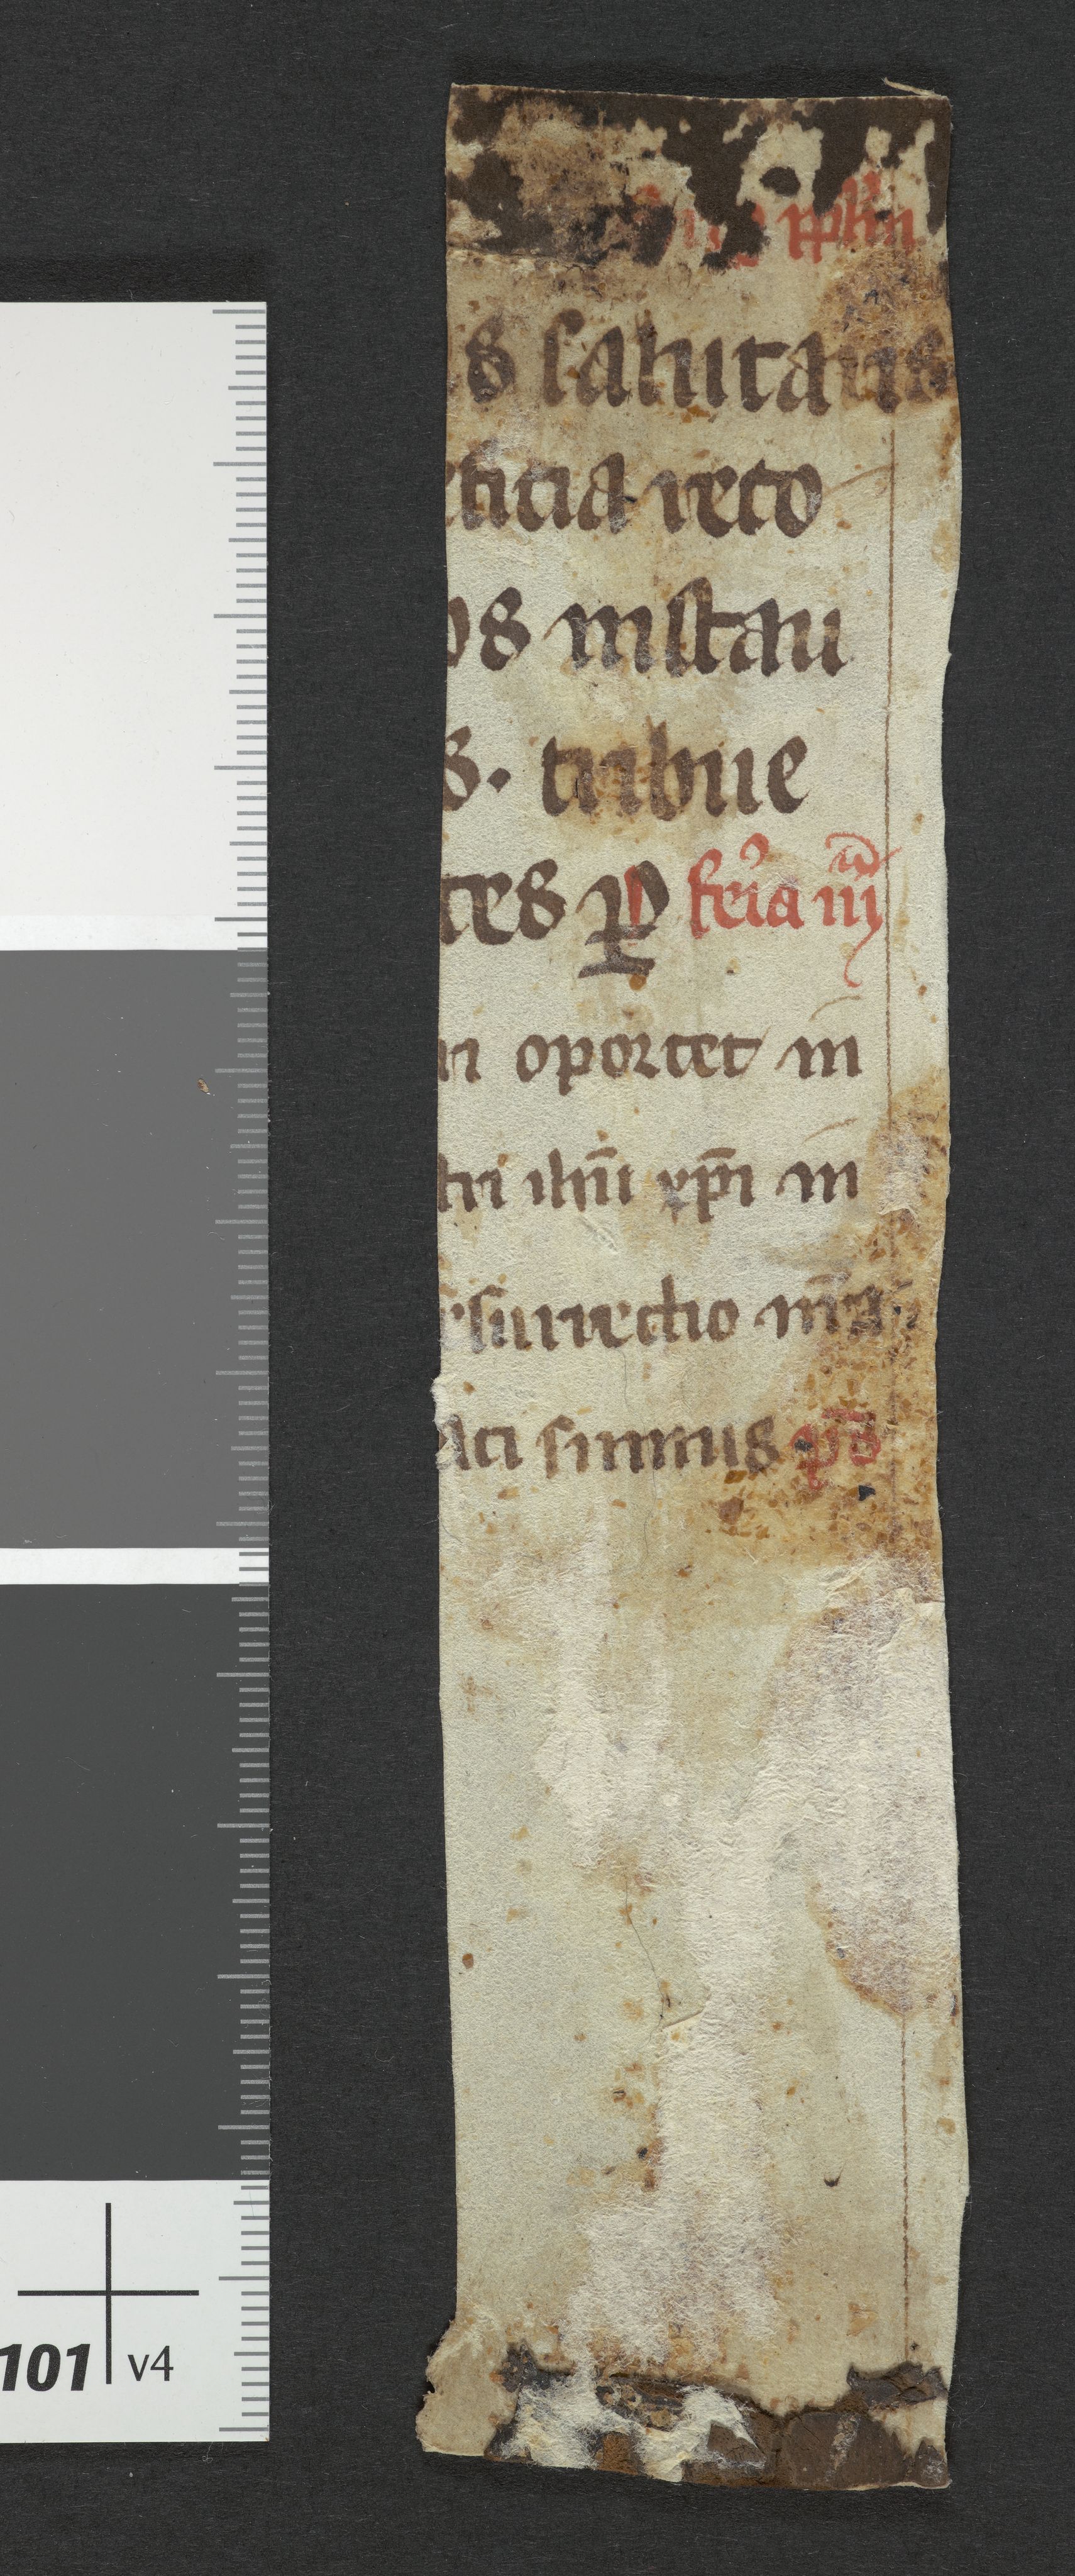 s salutaris
eticia reco
os instau
s. tribue
tes ꝑ feria iiij
ri oportet in
tri ihū xp̄i in
esurrectio nr̄a
ati sumus ps̄
101 v4